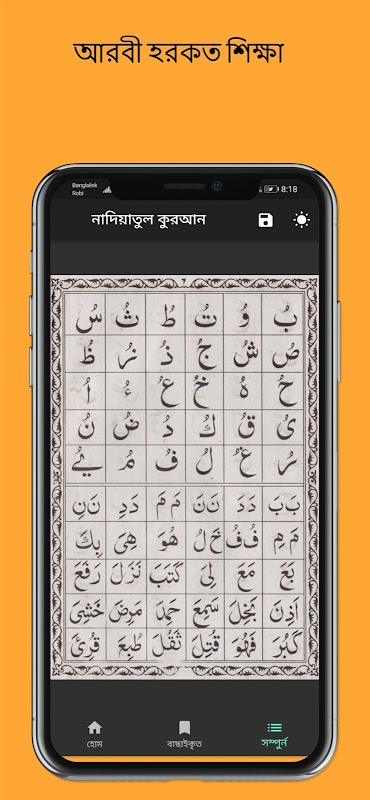 আরবী হরকত শিক্ষা
Banglalink
Robi
8:18
নাদিয়াতুল কুরআন
بُ وُ تُ طُ ثُ سُ
صُ شُ جُ ذُ زُ ظُ
حُ هُ خُ عُ ءُ اُ
ىُ قُ كُ دُ ضُ نُ
رُ غُ لُ فُ مُ
بَ بَ دَ دَ نَ نَ مَ مَ دَ دِ نَ نِ
مَ مِ فُ فُ خَ لُ هُوَ هِىَ بِكَ
بَعَ مَعَ لِىَ كَتَبَ نَزَلَ رَفَعَ
اَذِنَ بَخِلَ سَمِعَ حَمِدَ مَرِضَ خَشِىَ
كَبُرَ فَهُوَ قُتِلَ ثَقُلَ طُبِعَ قُرِئَ
হোম বাছাইকৃত সম্পূর্ন